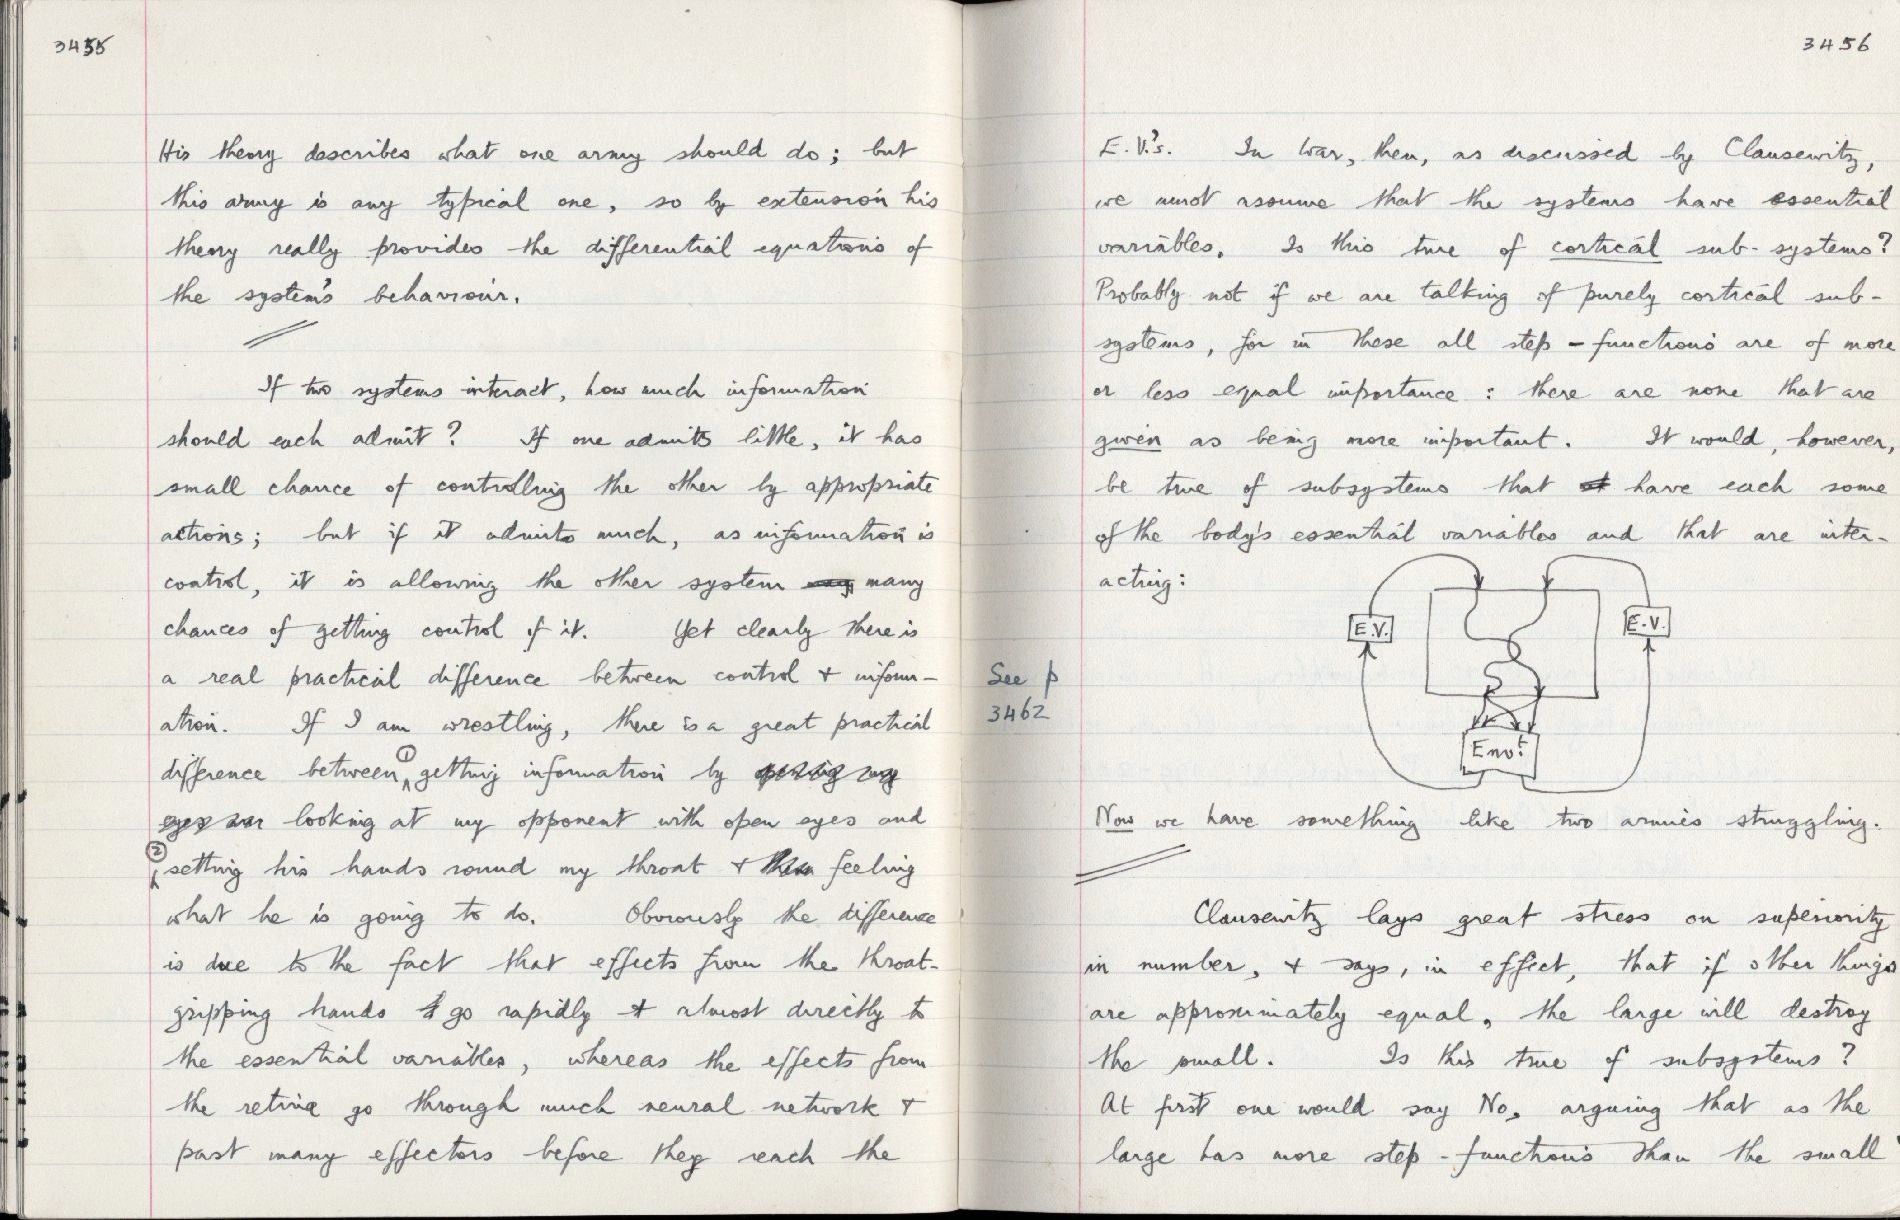 3455
His theory describes what one army should do; but
this army is any typical one, so by extension his
theory really provides the differential equations of
the system's behaviour.
If two systems interact, how much information
should each admit? If one admits little, it has
small chance of controlling the other by appropriate
actions; but if it admits much, as information is
control, it is allowing the other system many
chances of getting control of it. Yet clearly there is
a real practical difference between control + inform-
ation. If I am wrestling, there is a great practical
difference between ① getting information by
looking at my opponent with open eyes and
② setting his hands round my throat + feeling
what he is going to do. Obviously the difference
is due to the fact that effects from the throat-
gripping hands go rapidly + almost directly to
the essential variables, whereas the effects from
the retina go through much neural network +
past many effectors before they reach the
3456
E.V.'s. In War, then, as discussed by Clausewitz,
we must assume that the systems have essential
variables. Is this true of cortical sub-systems?
Probably not if we are talking of purely cortical sub-
systems, for in these all step-functions are of more
or less equal importance: there are none that are
given as being more important. It would, however,
be true of subsystems that have each some
of the body's essential variables and that are inter-
acting:
E.V.
E.V.
See p
3462
Envt
Now we have something like two armies struggling.
Clausewitz lays great stress on superiority
in number, + says, in effect, that if other things
are approximately equal, the large will destroy
the small. Is this true of subsystems?
At first one would say No, arguing that as the
large has more step-functions than the small